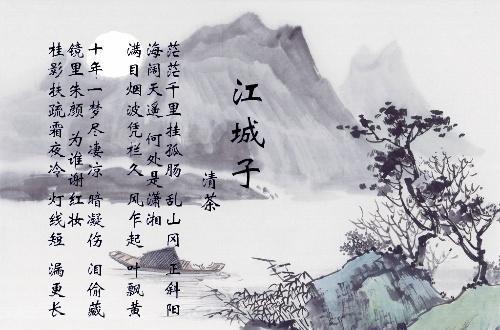 江城子
清茶
茫茫千里挂孤肠 乱山冈 正斜阳
海阔天遥 何处是潇湘
满目烟波凭栏久 风乍起 叶飘黄
十年一梦尽凄凉 暗凝伤 泪偷藏
镜里朱颜 为谁谢红妆
桂影扶疏霜夜冷 灯线短 漏更长